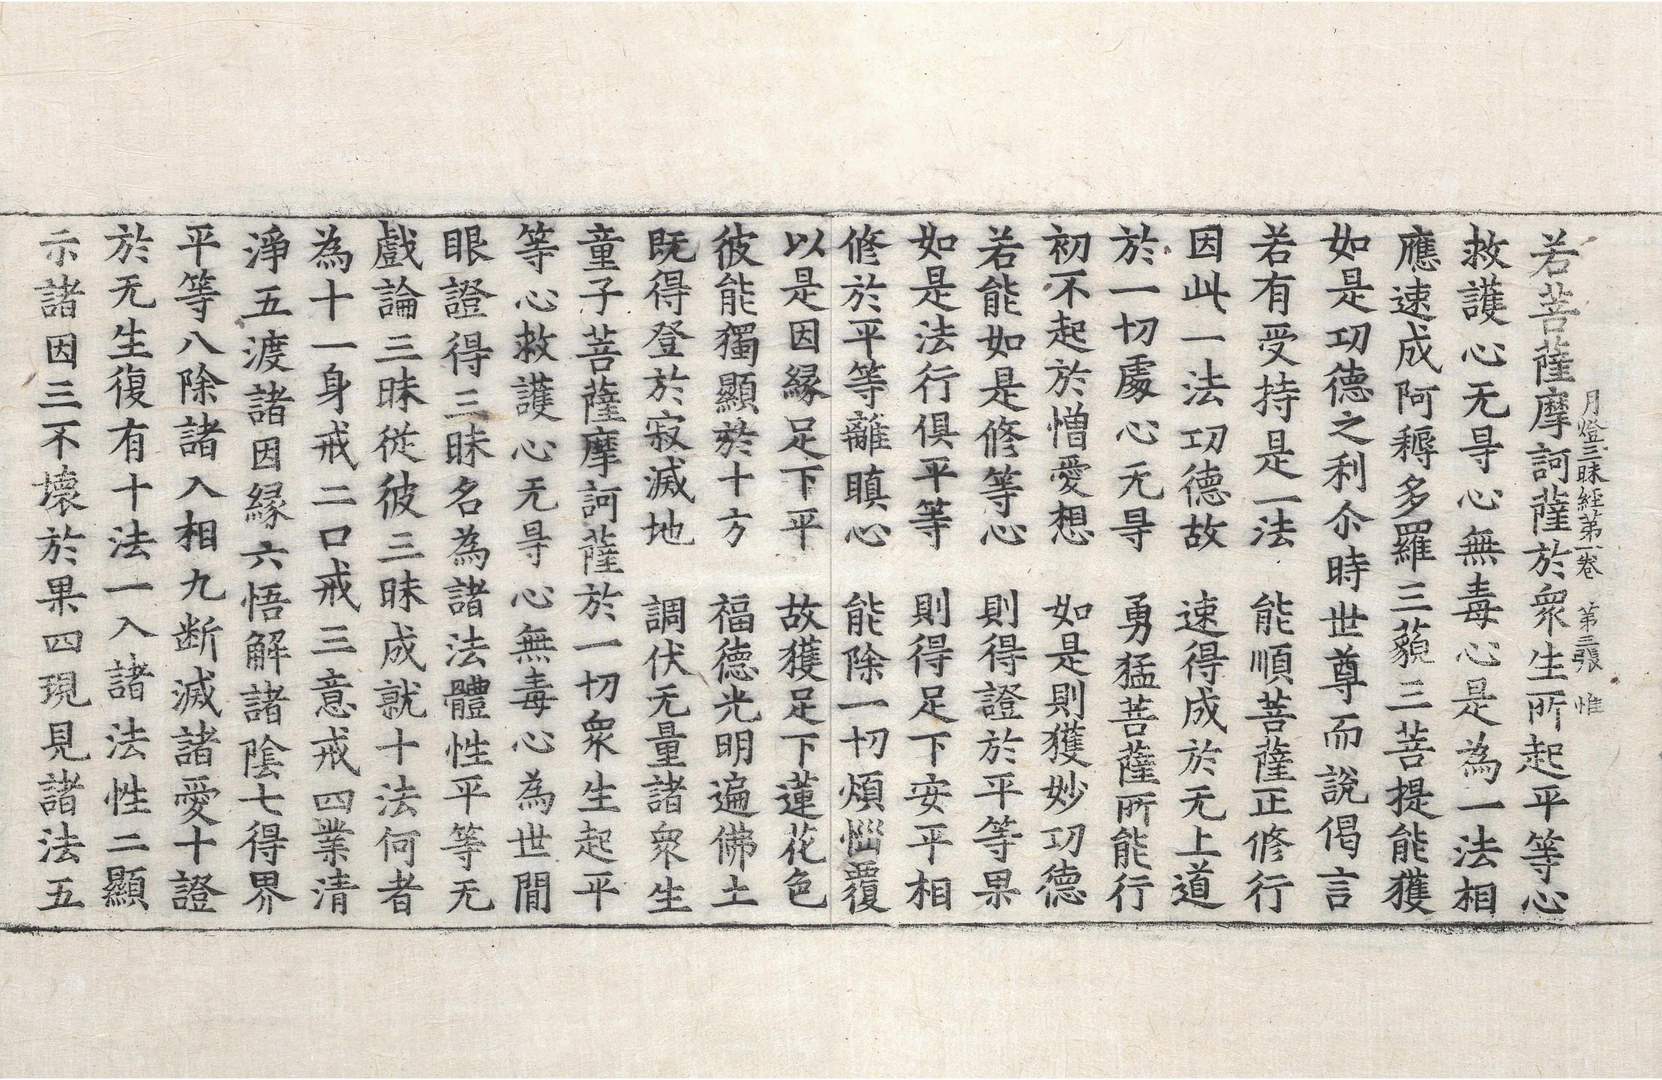 月燈三昧經第一卷 第三張 惟
若菩薩摩訶薩於衆生所起平等心
救護心无㝵心無毒心是為一法相
應速成阿耨多羅三藐三菩提能獲
如是功德之利尒時世尊而說偈言
若有受持是一法 能順菩薩正修行
因此一法功德故 速得成於无上道
於一切處心无㝵 勇猛菩薩所能行
初不起於憎愛想 如是則獲妙功德
若能如是修等心 則得證於平等果
如是法行俱平等 則得足下安平相
修於平等離瞋心 能除一切煩惱覆
以是因縁足下平 故獲足下蓮花色
彼能獨顯於十方 福德光明遍佛土
既得登於寂滅地 調伏无量諸衆生
童子菩薩摩訶薩於一切衆生起平
等心救護心无㝵心無毒心為世間
眼證得三昧名為諸法體性平等无
戲論三昧從彼三昧成就十法何者
為十一身戒二口戒三意戒四業清
淨五渡諸因縁六悟解諸陰七得界
平等八除諸入相九断滅諸愛十證
於无生復有十法一入諸法性二顯
示諸因三不壞於果四現見諸法五